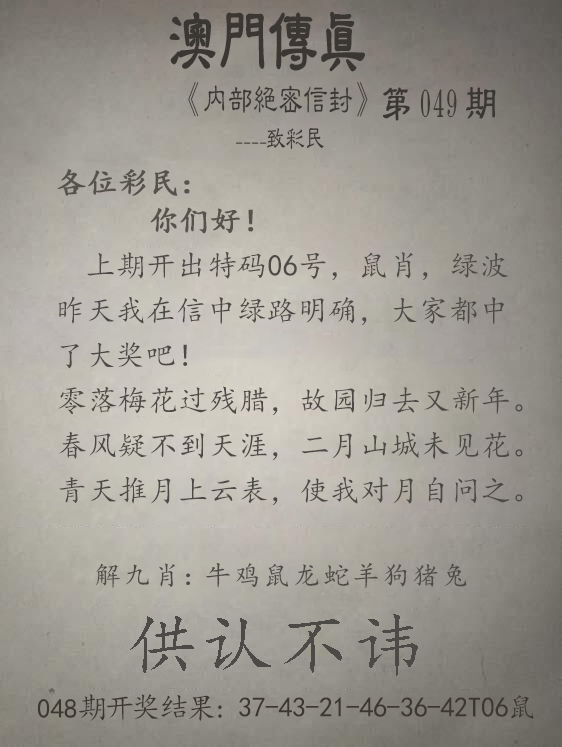 澳門傳眞
《内部絕密信封》第049期
----致彩民
各位彩民：
你们好！
上期开出特码06号，鼠肖，绿波
昨天我在信中绿路明确，大家都中
了大奖吧！
零落梅花过残腊，故园归去又新年。
春风疑不到天涯，二月山城未见花。
青天推月上云表，使我对月自问之。
解九肖：牛鸡鼠龙蛇羊狗猪兔
供认不讳
048期开奖结果：37-43-21-46-36-42T06鼠